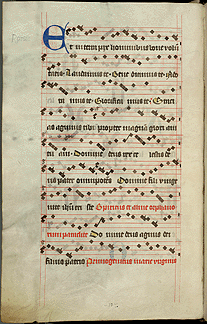 Et in terra pax hominibus bone volu
tatis Laudamus te Bene dicimus te Ado
ra mus te Glorifica mus te Graci
as agimus tibi propter magnā gloriā tu
am Domine deus rex ce lestis de
us pater omnipotēs Domine fili unige
nite ihū xpe Spiritus et alme orphano
rum paraclite Domine deus agnus dei
filius patris Primogenitus marie virginis